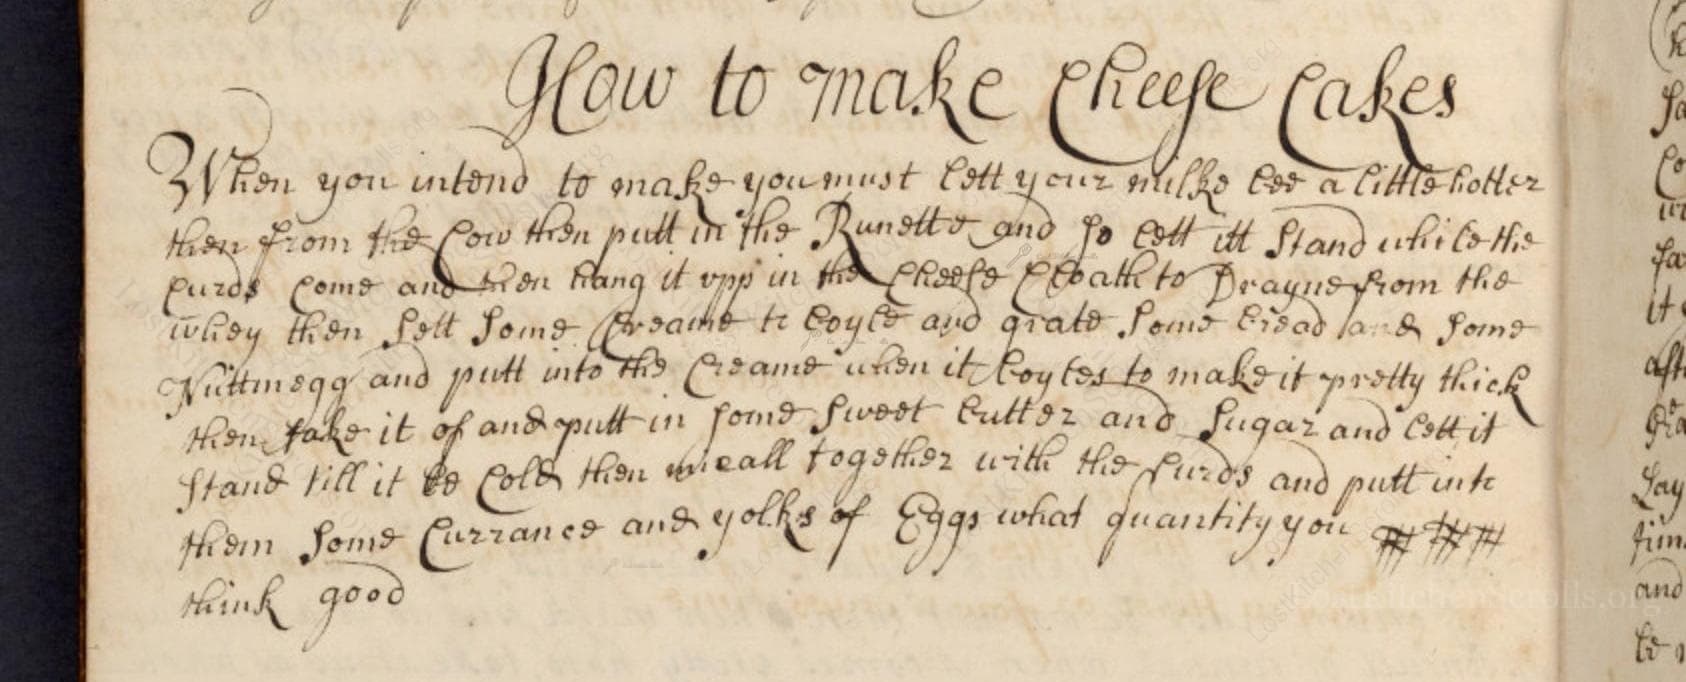 How to make Cheese Cakes
When you intend to make you must lett your milke bee a little hotter
then from the Cow then putt in the Runette and so lett itt stand while the
Curds Come and then hang it vpp in the Cheese Cloath to Drayne from the
whey then sett some Creame to boyle and grate some bread and some
Nuttmegg and putt into the Creame when it boyles to make it pretty thick
then take it of and putt in some sweet butter and Sugar and lett it
stand till it be Cold then all together with the Curds and putt into
them some Currance and yolks of Eggs what quantity you
think good